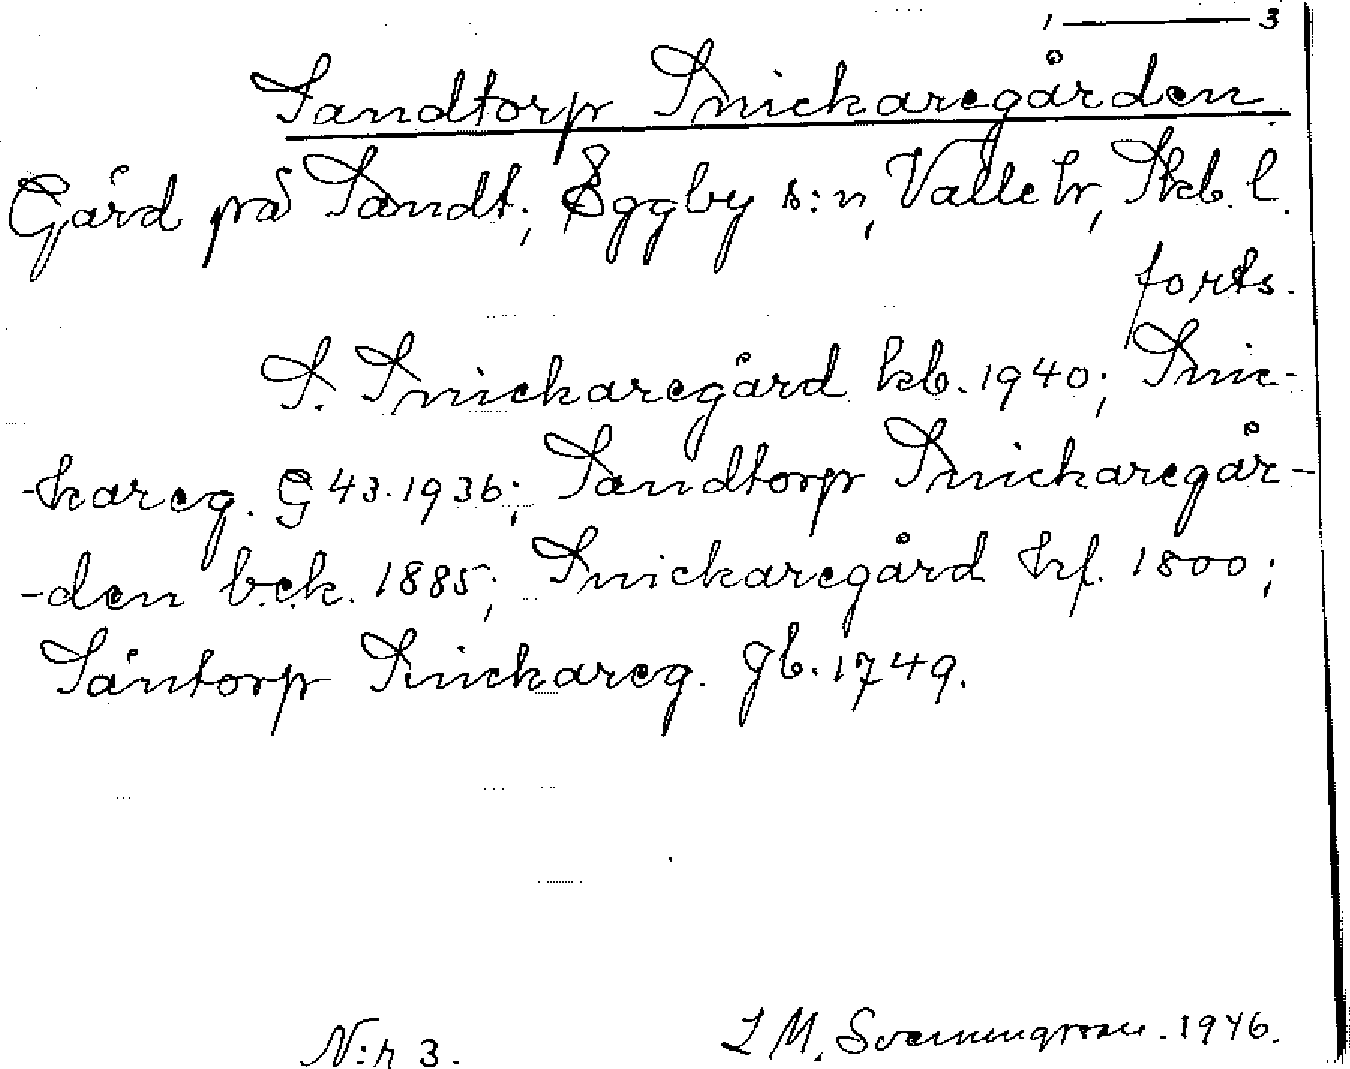 1 — 3
Sandtorp Snickaregården
Gård på Sandt., Eggby s:n, Valle hr, Skb. l.
forts.
S. Snickaregård kb. 1940; Snic-
-kareg. G 43. 1936; Sandtorp Snickaregår-
-den b.e.k. 1885; Snickaregård hf. 1800;
Såntorp Snickareg. gb. 1749.
N:r 3. L M. Svenungsson. 1946.